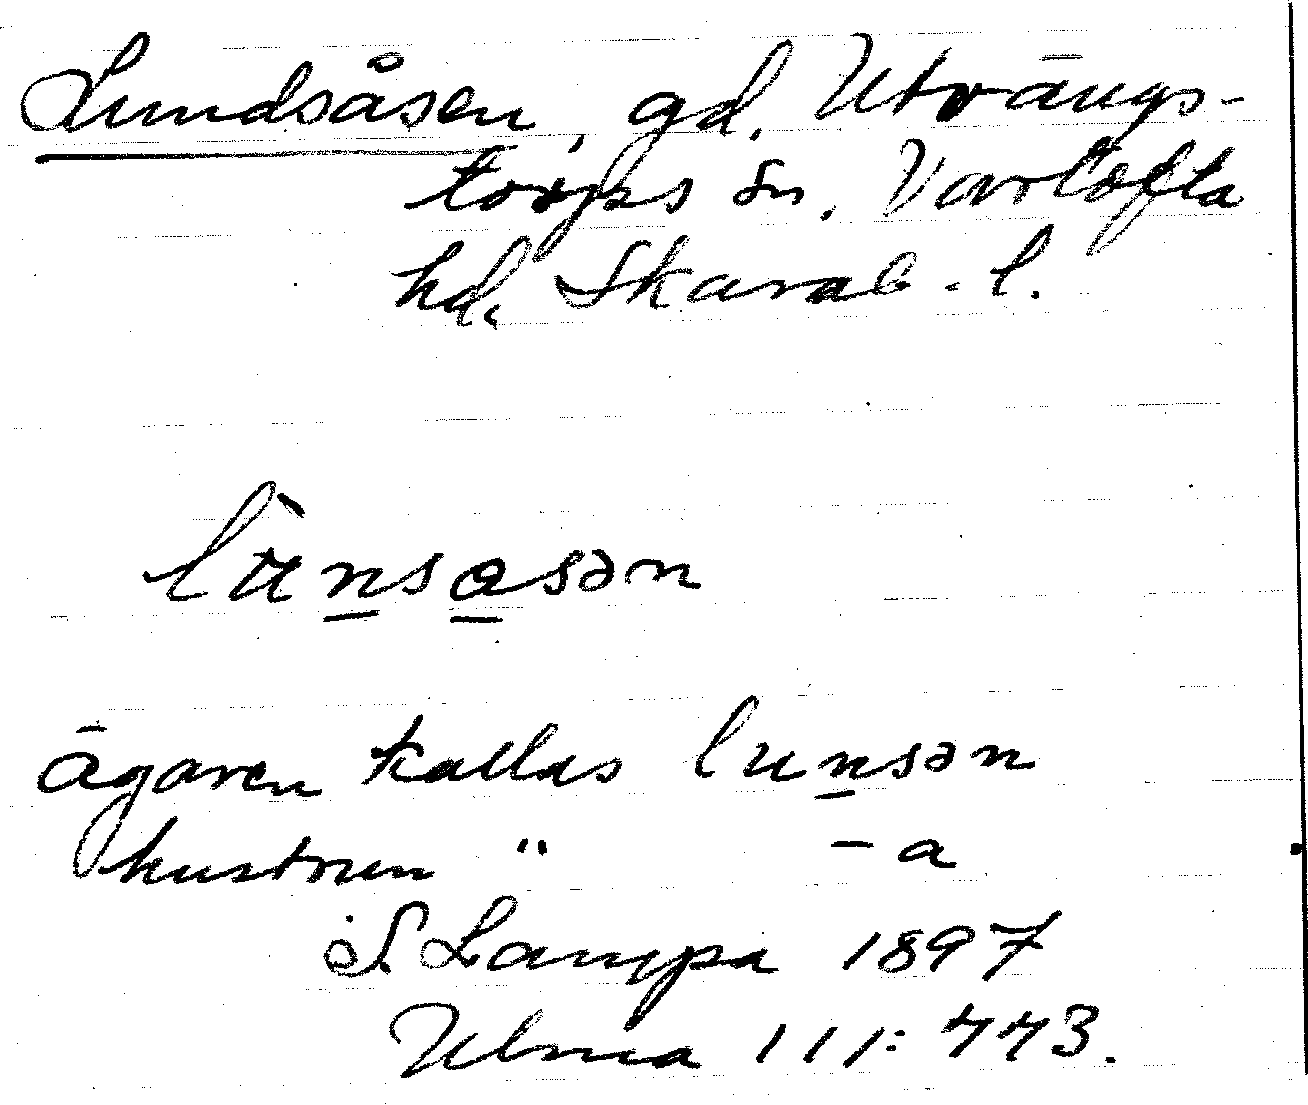 Lundsåsen, gd. Utvängs-
torps sn. Vartofta
hd. Skarab. l.
lùn̲sa̲sən
Ägaren kallas lun̲sən
hustrun " - a
S. Lampa 1897
Ulma 111: 443.